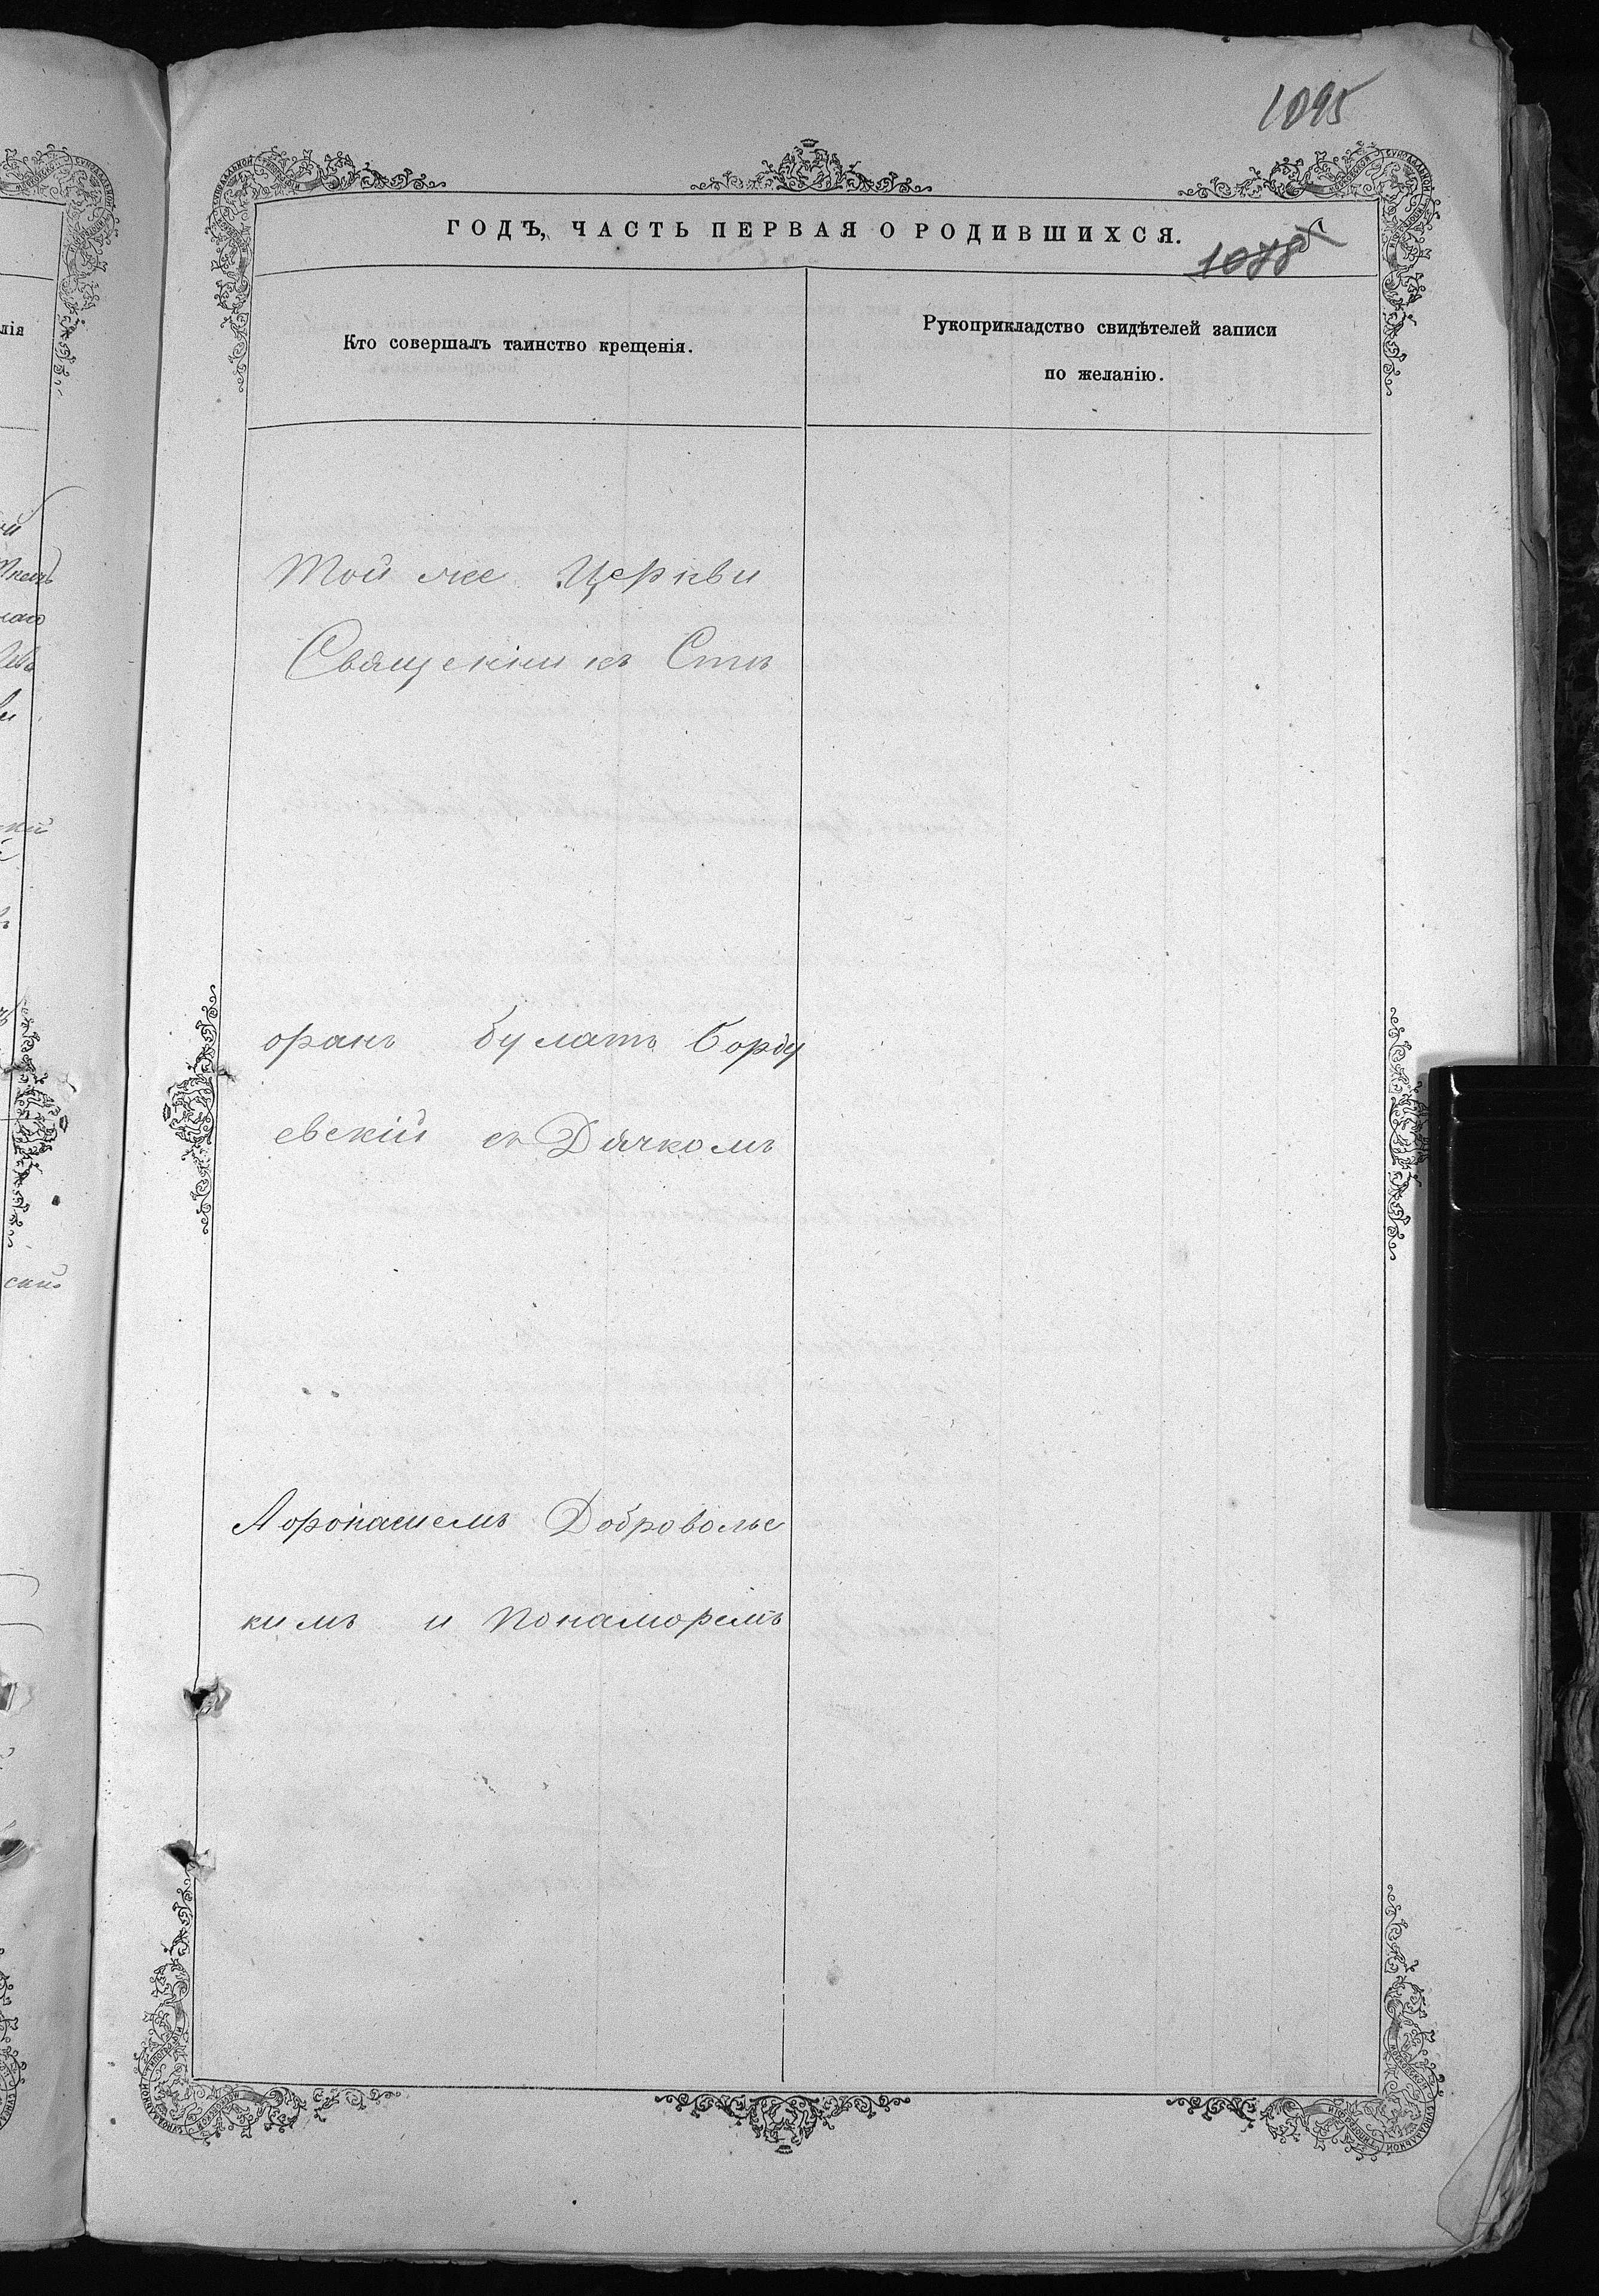 1095
ГОДЪ, ЧАСТЬ ПЕРВАЯ О РОДИВШИХСЯ.
1078
Кто совершалъ таинство крещенія.
Рукоприкладство свидѣтелей записи
по желанію.
Той же Церкви
Священникъ Сте
фанъ Булатъ Борду
евскій съ Дячкомъ
Афонасіемъ Доброволь
кимъ и Пономоремъ
лія
кій